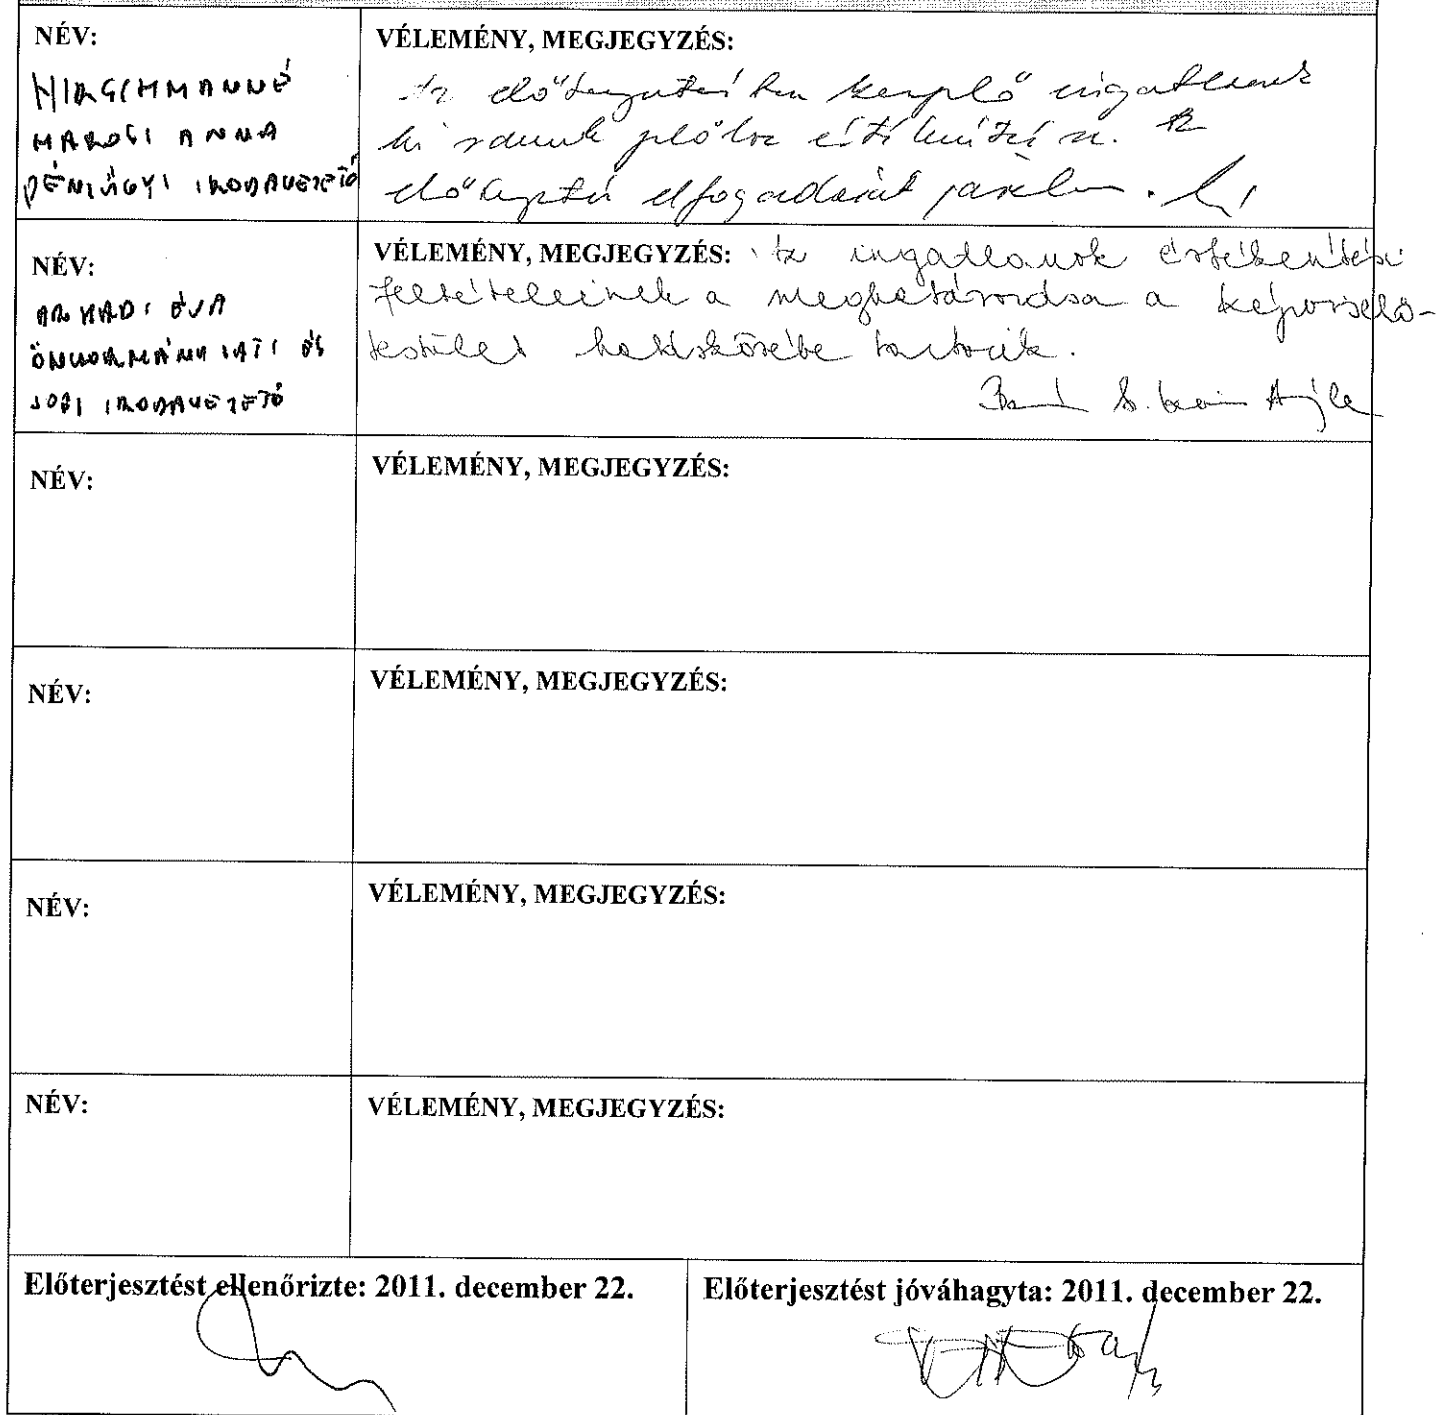 NÉV:
HIRSCHMANNÉ
MAROSI ANNA
PÉNZÜGYI IRODAVEZETŐ
VÉLEMÉNY, MEGJEGYZÉS:
Az előterjesztésben szereplő ingatlanok
előterjesztés elfogadását javaslom.
NÉV:
ÁRVÁDI ÉVA
ÖNKORMÁNYZATI ÉS
JOGI IRODAVEZETŐ
VÉLEMÉNY, MEGJEGYZÉS: Az ingatlanok értékesítési
feltételeinek a meghatározása a képviselő-
testület hatáskörébe tartozik.
NÉV:
VÉLEMÉNY, MEGJEGYZÉS:
NÉV:
VÉLEMÉNY, MEGJEGYZÉS:
NÉV:
VÉLEMÉNY, MEGJEGYZÉS:
NÉV:
VÉLEMÉNY, MEGJEGYZÉS:
Előterjesztést ellenőrizte: 2011. december 22.
Előterjesztést jóváhagyta: 2011. december 22.